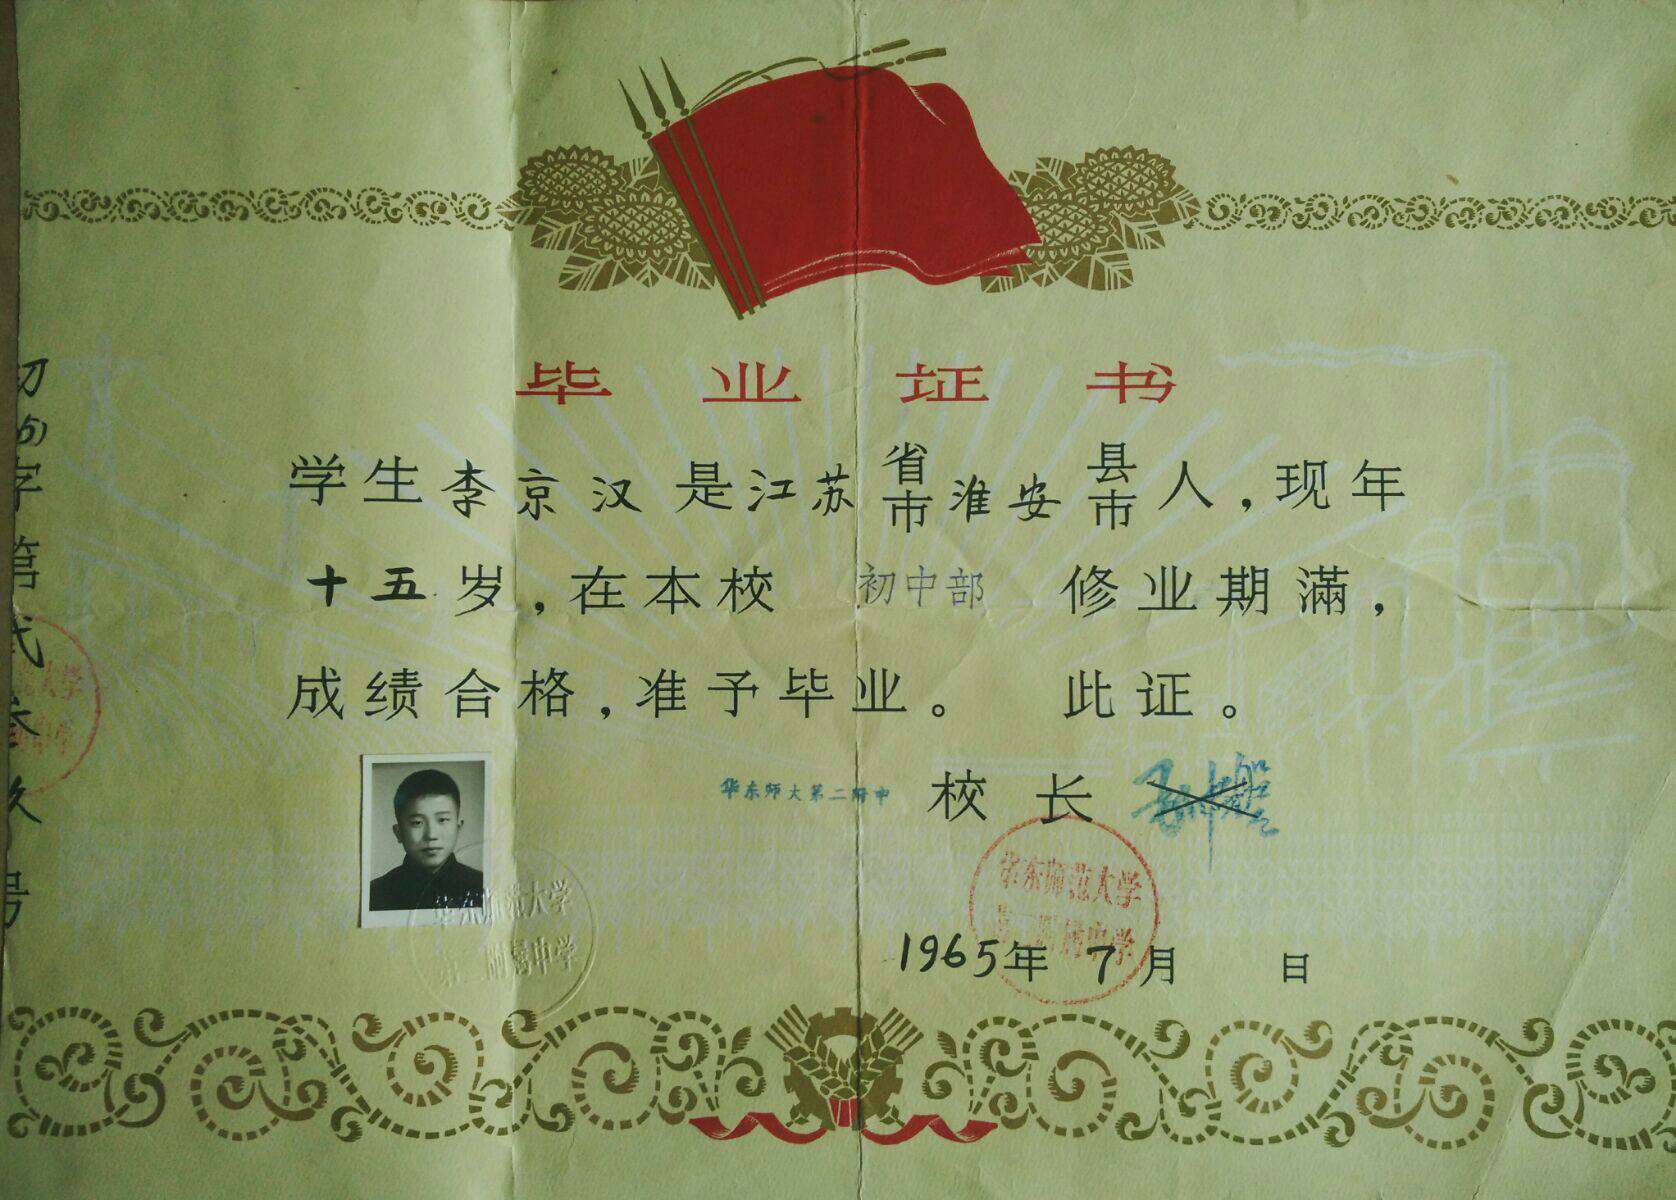 毕业证书
学生李京汉是江苏省市淮安县市人，现年
十五岁，在本校 初中部 修业期滿，
成绩合格，准予毕业。 此证。
华东师大第二附中 校长
华东师范大学
附属中学
华东师范大学
附属中学
1965年7月 日
字第贰叁玖号